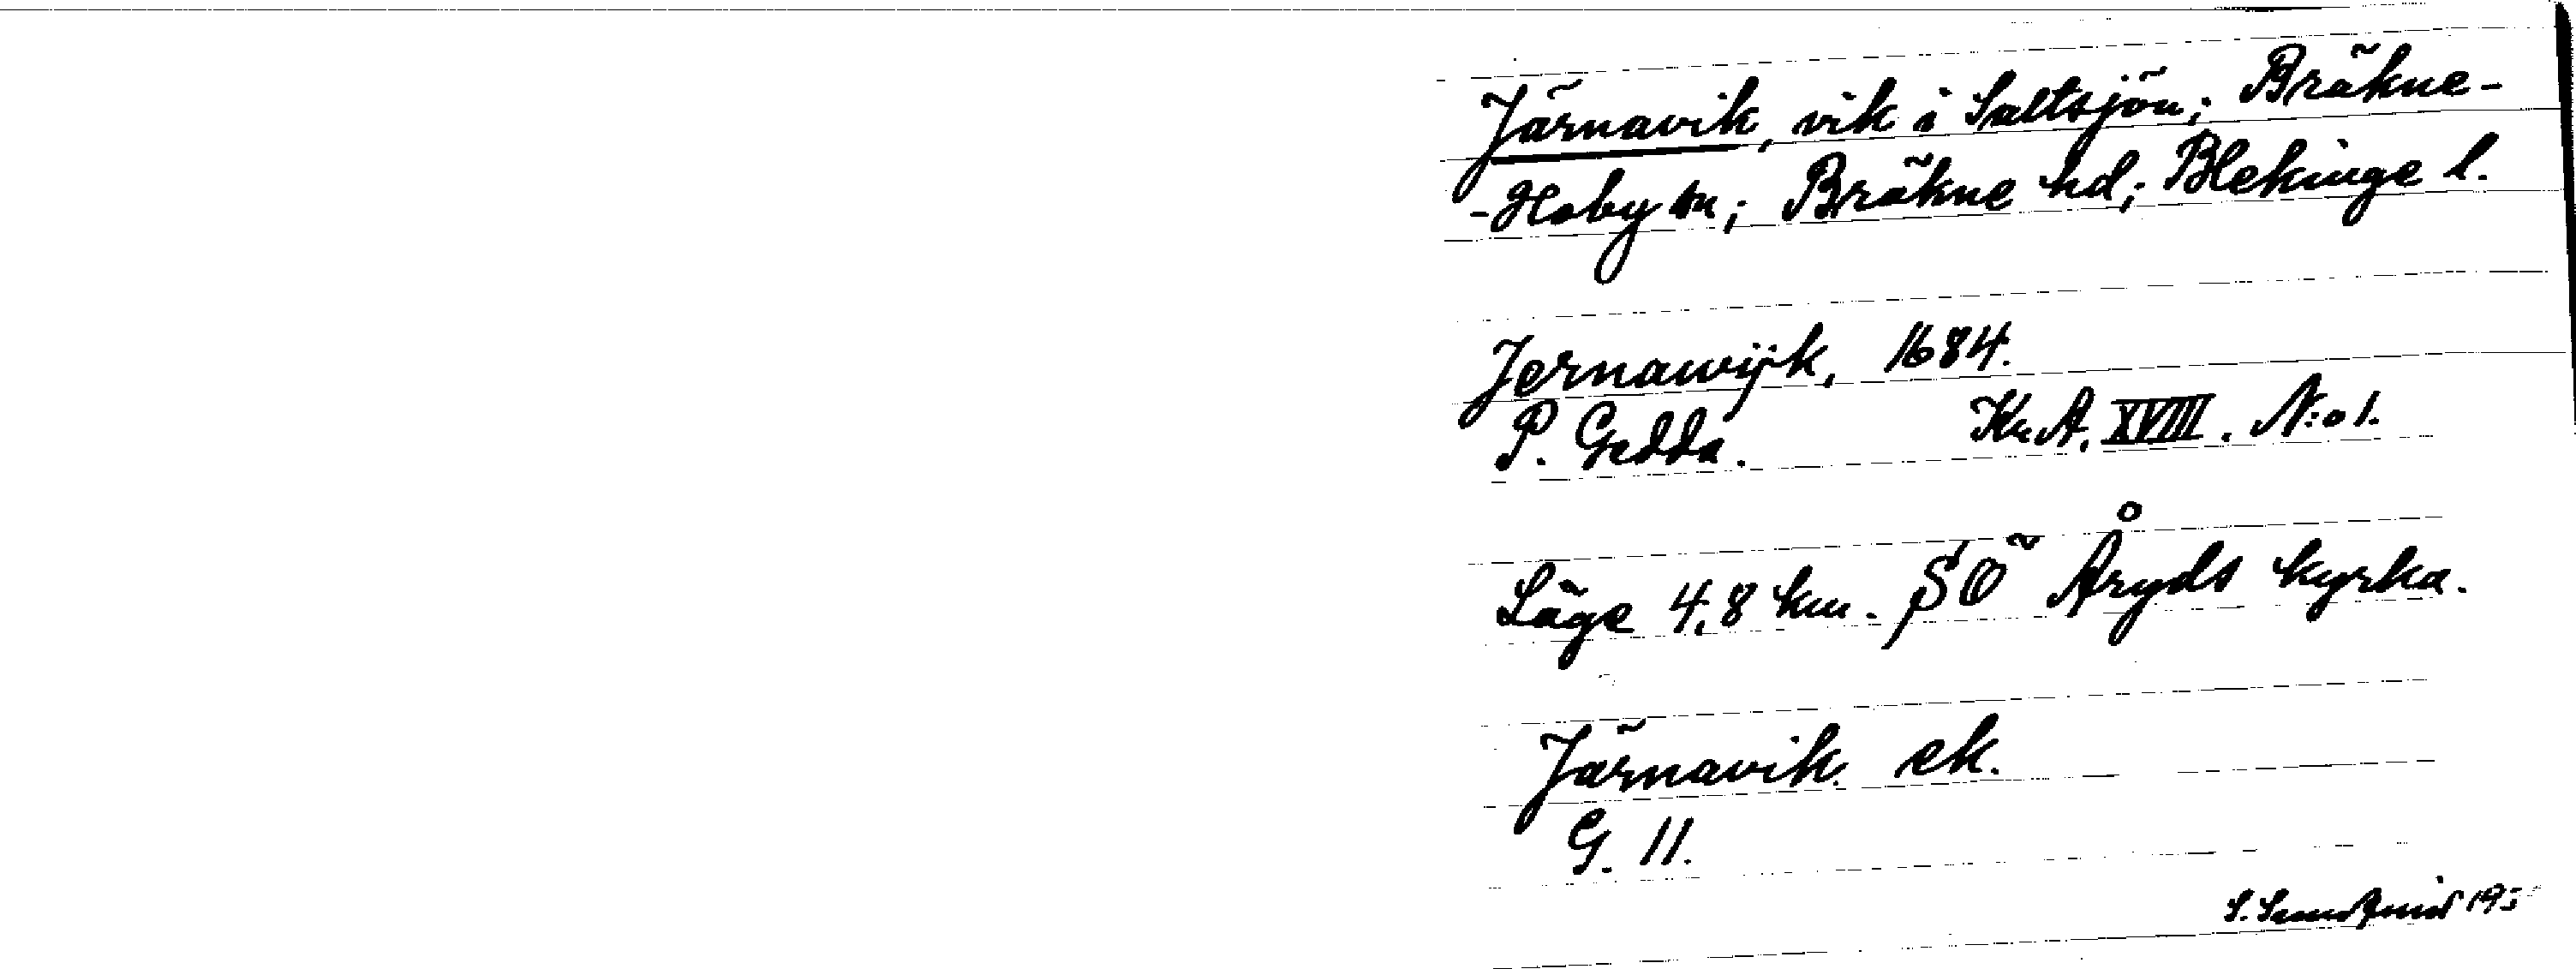 Järnavik, vik i Saltsjön; Bräkne-
-Hoby sn; Bräkne hd; Blekinge l.
Jernawijk, 1684.
P. Gedda. Kr.A. XVIII. N:o 1.
Läge 4,8 km. SÖ Åryds kyrka.
Järnavik. ek.
G. 11.
S.